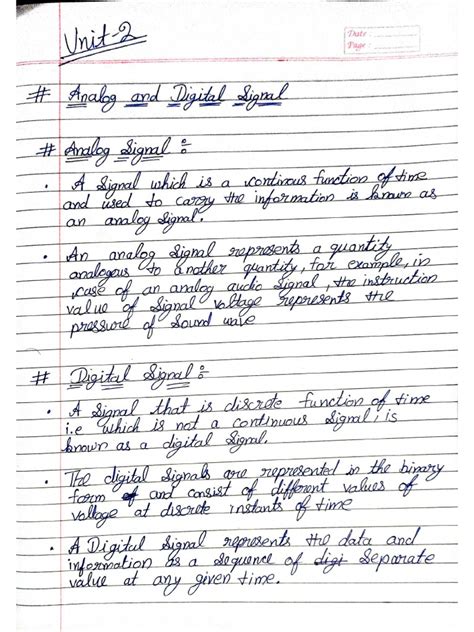 Unit-2
Date :
Page :
# Analog and Digital Signal
# Analog Signal :
• A Signal which is a continous function of time
and used to carry the information is known as
an analog signal.
• An analog Signal represents a quantity
analogous to another quantity, for example, in
case of an analog audio Signal, the instruction
value of Signal voltage represents the
pressure of Sound wave
# Digital Signal :
• A Signal that is discrete function of time
i.e which is not a continuous Signal, is
known as a digital Signal.
• The digital Signals are represented in the binary
form and consist of different values of
voltage at discrete instants of time
• A Digital Signal represents the data and
information as a Sequence of digi Separate
value at any given time.